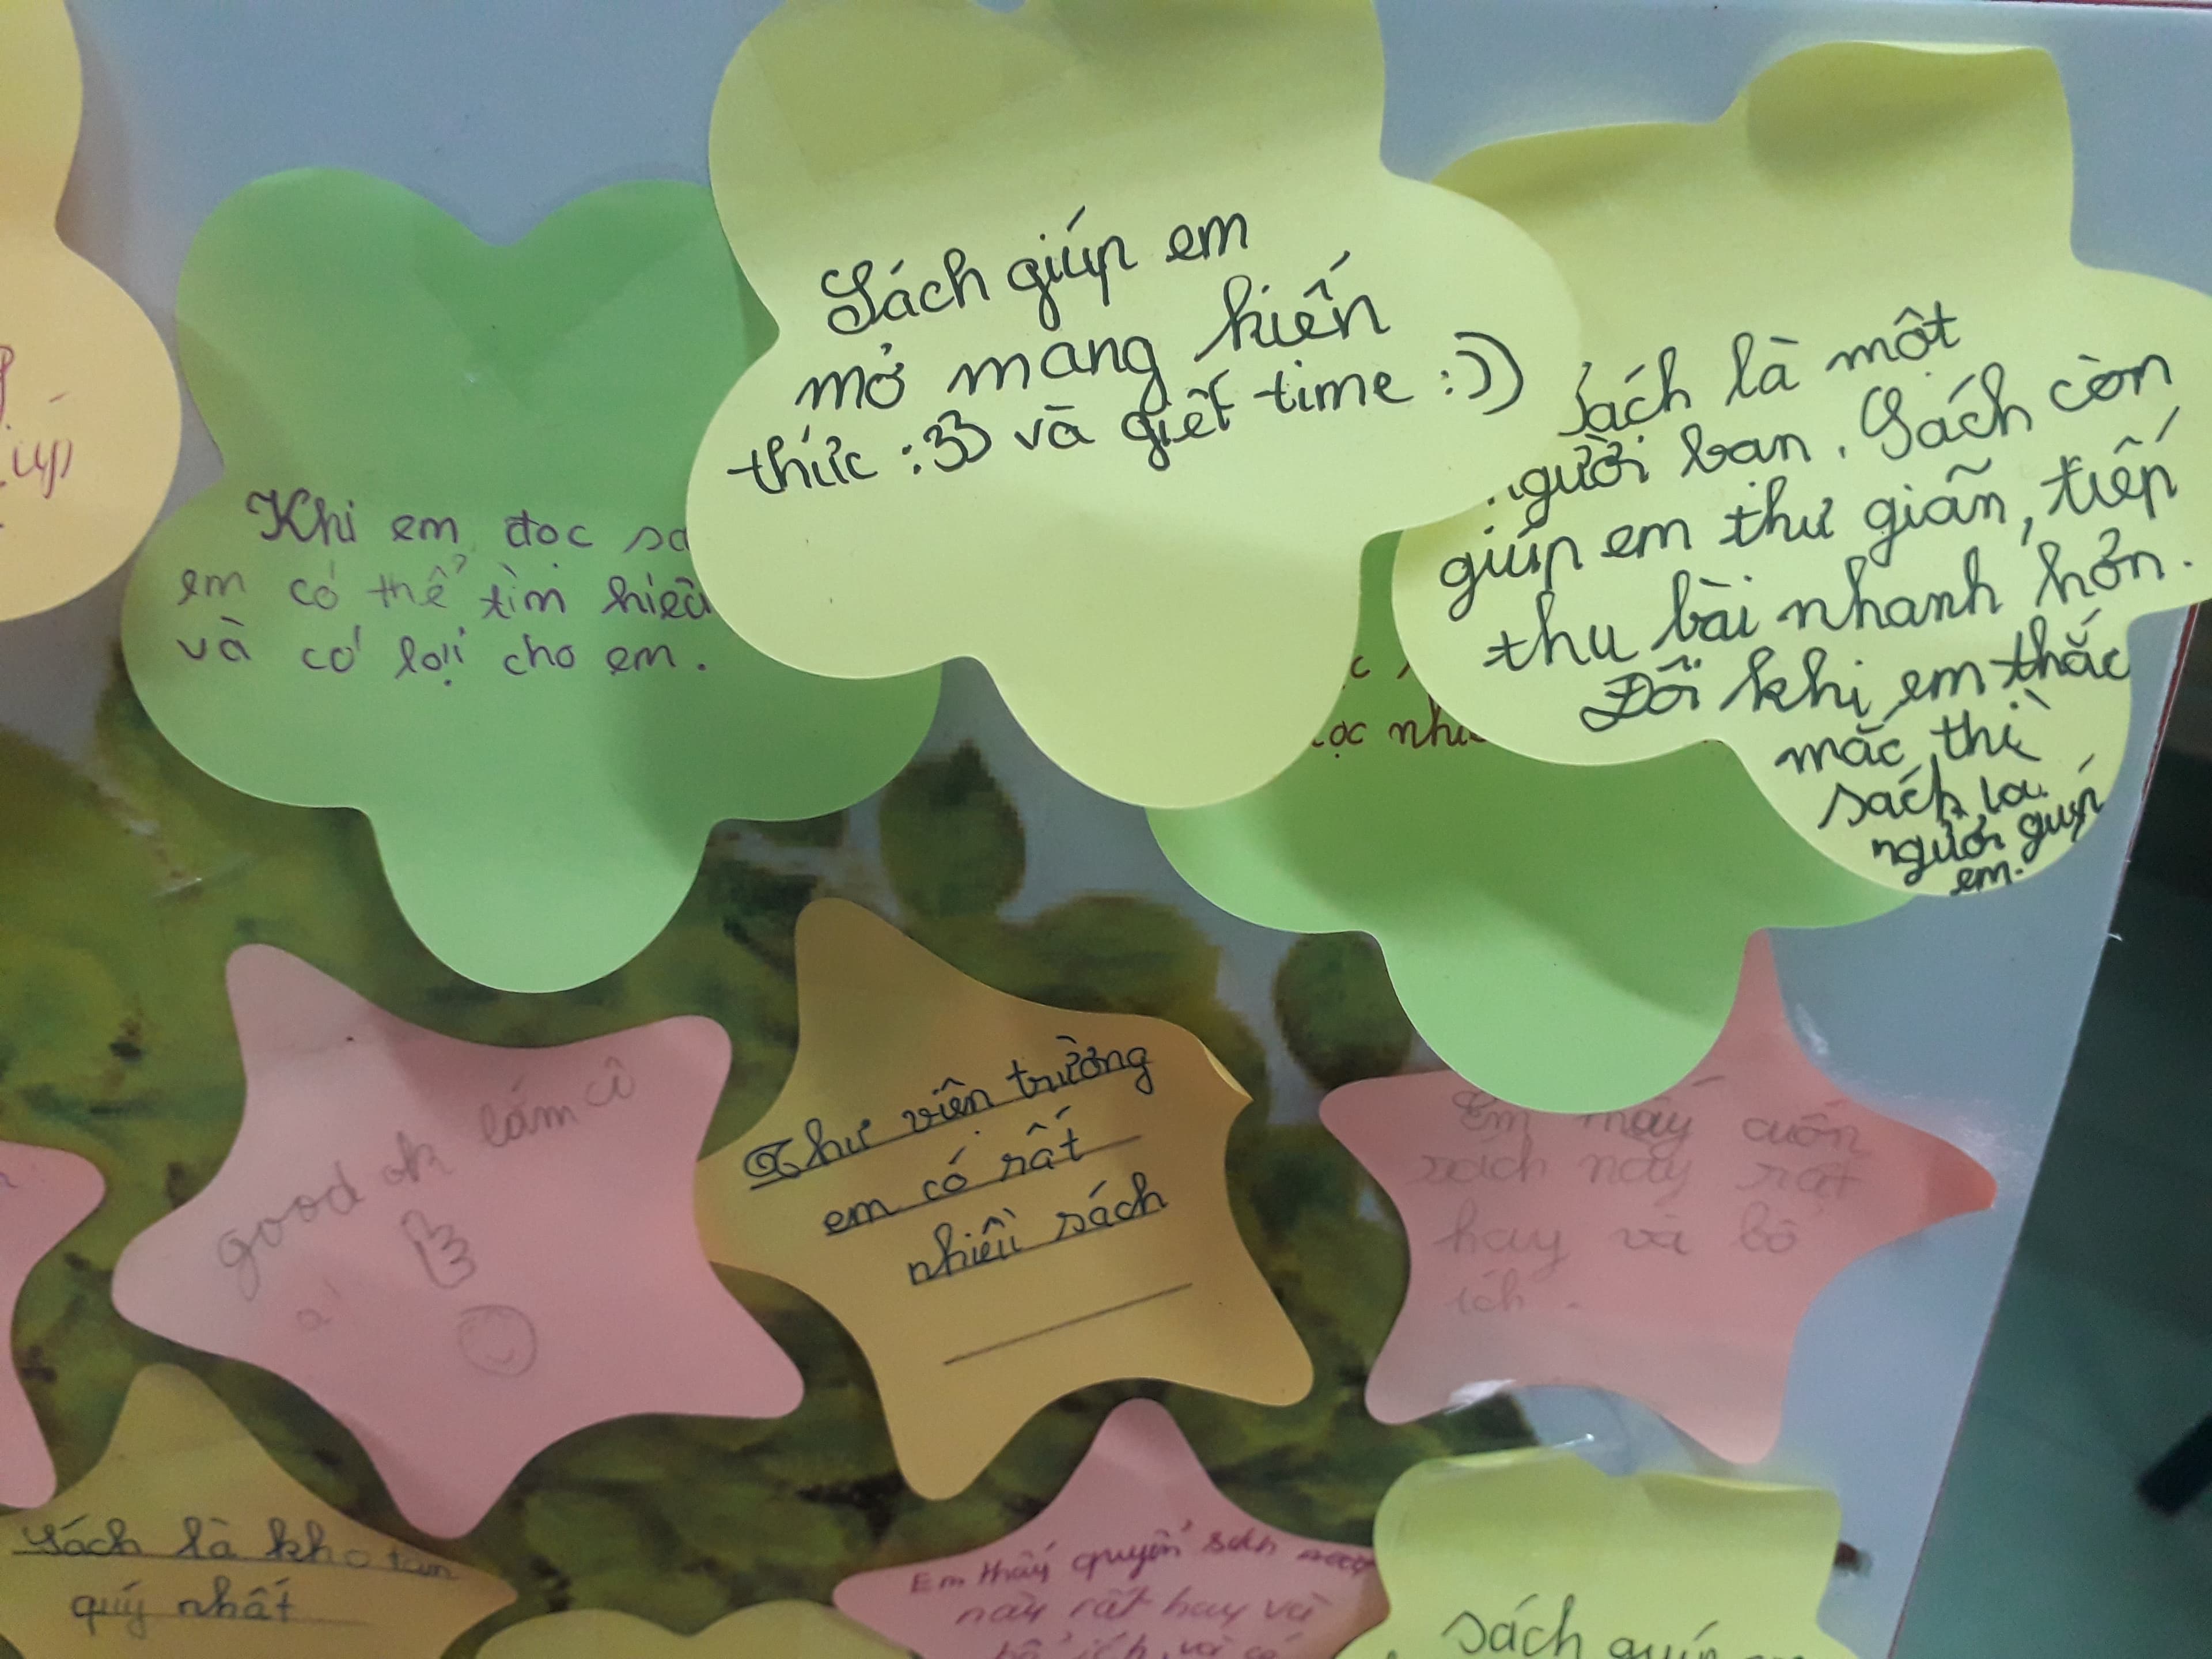 Sách giúp em
mở mang kiến
thức :33 và giết time :))
Sách là một
người bạn. Sách còn
giúp em thư giãn, tiếp
thu bài nhanh hơn.
Đôi khi em thắc
mắc thì
sách là
người giúp
em.
Khi em đọc
em có thể tìm hiểu
và có lợi cho em.
úp
ọc
good ok lắm cô
ạ
Thư viện trường
em có rất
nhiều sách
Em thấy cuốn
sách này rất
hay và bổ
ích.
Sách là kho tàn
quý nhất
Em thấy quyển sách
này rất hay và
bổ ích, và có
sách giúp